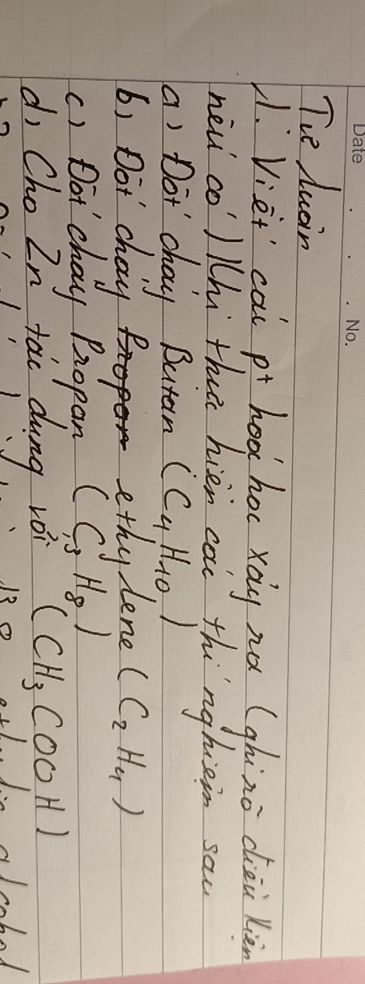 Date . . . No.
Tự luận
1. Viết các pt hoá học xảy ra (ghi rõ điều kiện
nếu có) khi thực hiện các thí nghiệm sau
a, Đốt cháy Butan (C4H10)
b, Đốt cháy ethylene (C2H4)
c, Đốt cháy Propan (C3H8)
d, Cho Zn tác dụng với (CH3COOH)